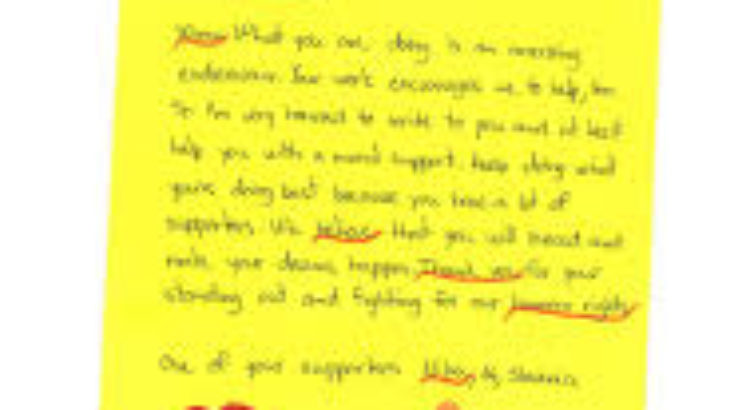 What you are doing is an amazing
endeavour. Your work encourages us to help, too.
So I'm very honored to write to you and at least
help you with a moral support. Keep doing what
you're doing best because you have a lot of
supporters. We believe that you will succeed and
make your dreams happen. Thank you for your
standing out and fighting for our human rights
One of your supporters 16, Slovenia